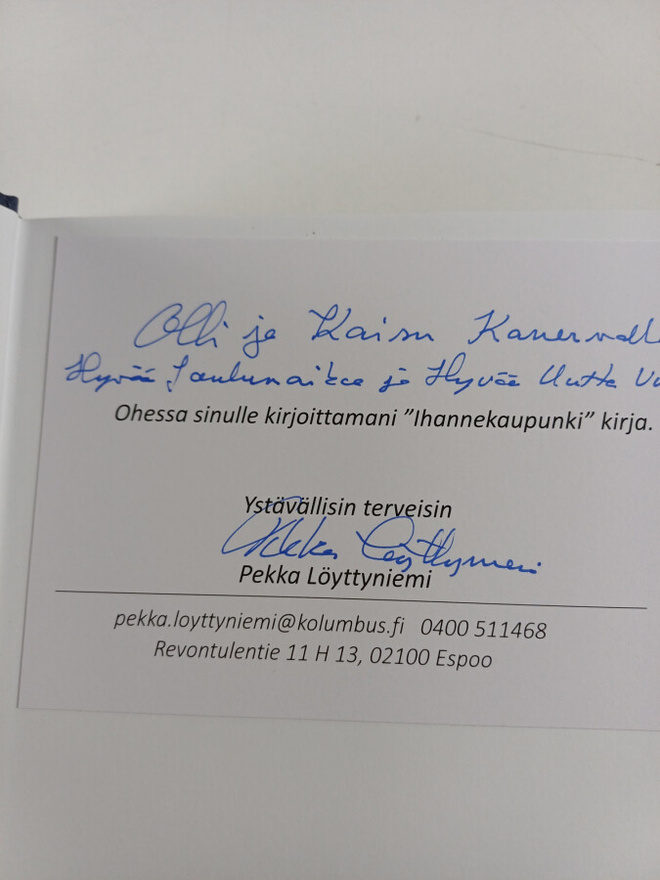 Olli ja Kaisu Kanervalle
Hyvää Jouluaikaa ja Hyvää Uutta
Ohessa sinulle kirjoittamani ”Ihannekaupunki” kirja.
Ystävällisin terveisin
Pekka Löyttyniemi
Pekka Löyttyniemi
pekka.loyttyniemi@kolumbus.fi 0400 511468
Revontulentie 11 H 13, 02100 Espoo